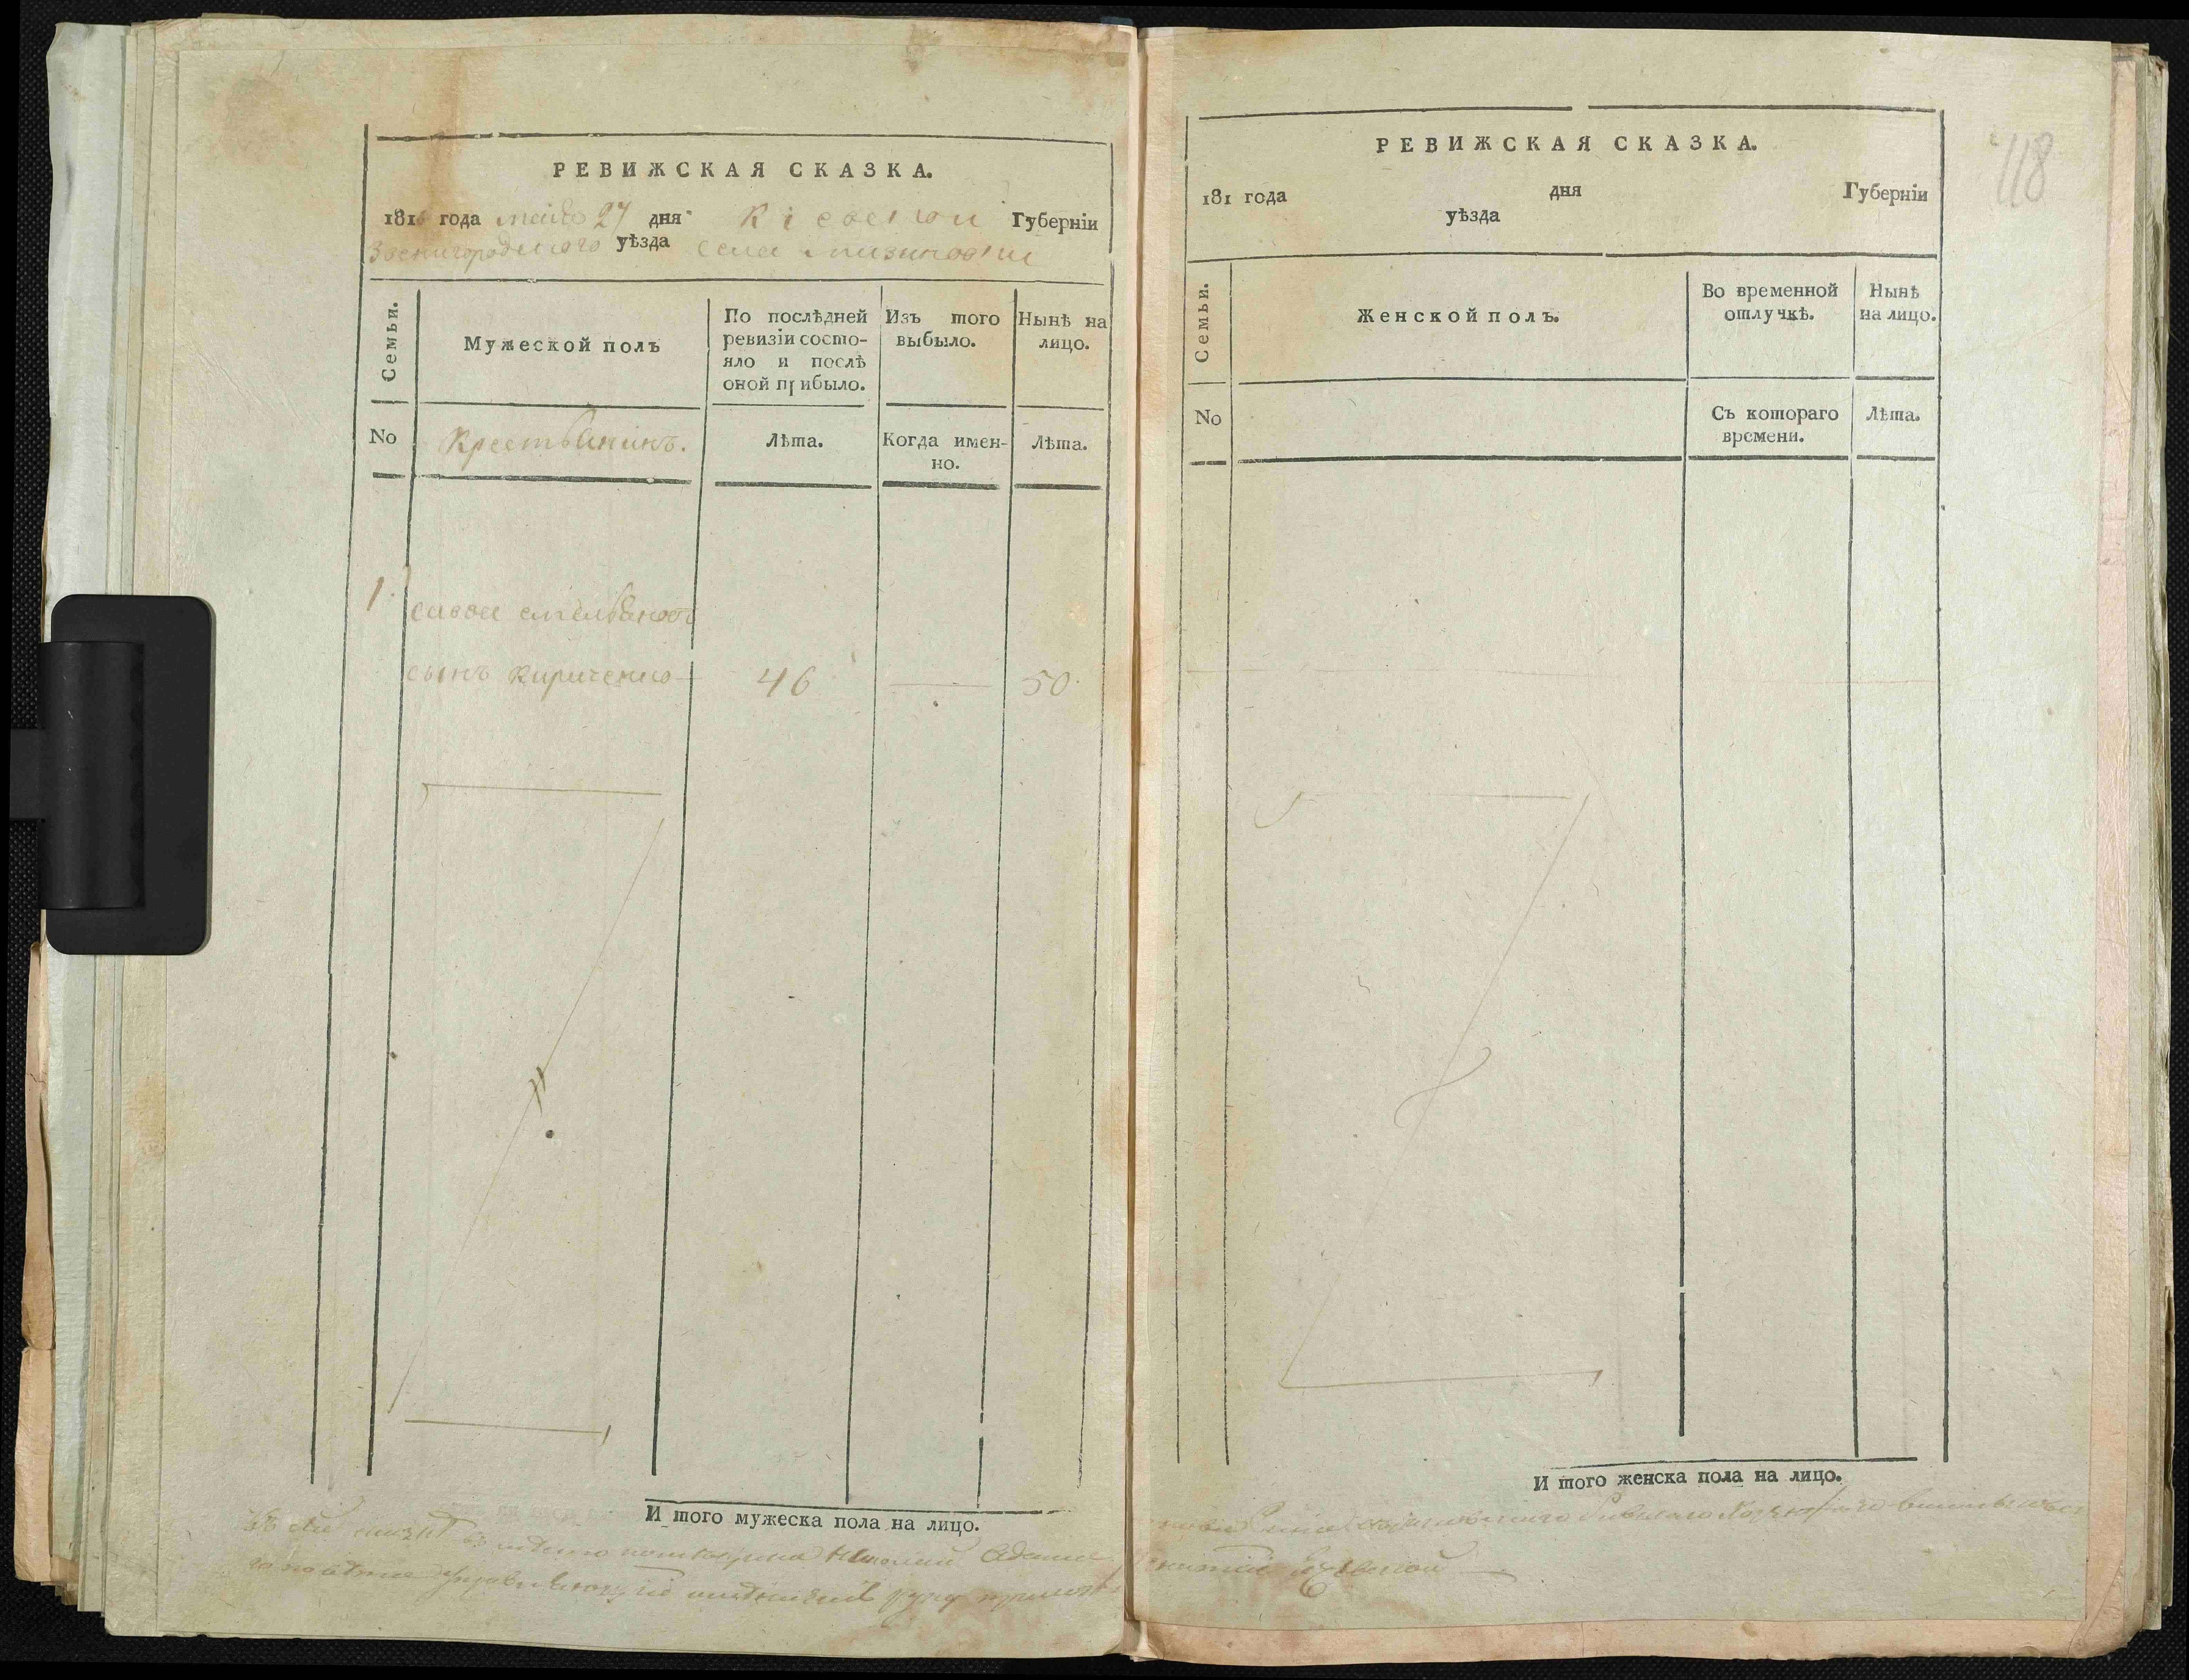 РЕВИЖСКАЯ СКАЗКА.
1816 года маія 27 дня Кіевской Губерніи
Звенигородского уѣзда села мизиновки
Семьи.
Мужеской полъ
По послѣдней
ревизіи состо-
яло и послѣ
оной прибыло.
Изъ того
выбыло.
Нынѣ на
лицо.
No
Крестьянинъ.
Лѣта.
Когда имен-
но.
Лѣта.
1.
савва емельяновъ
сынъ кириченко
46
50.
И того мужеска пола на лицо.
118
РЕВИЖСКАЯ СКАЗКА.
181 года дня Губерніи
уѣзда
Семьи.
Женской полъ.
Во временной
отлучкѣ.
Нынѣ
на лицо.
No
Съ котораго
времени.
Лѣта.
И того женска пола на лицо.